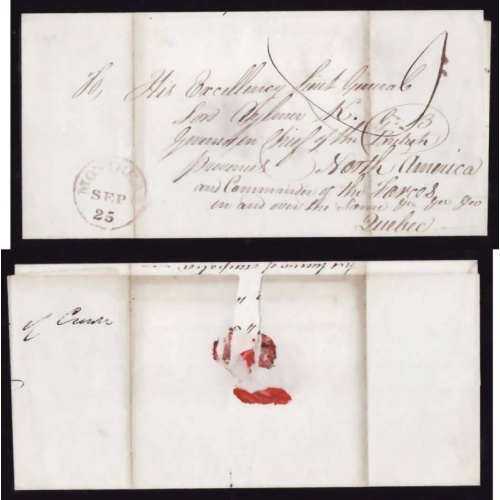 To, His Excellency Lieut General
Lord Aylmer K. C. B
Governor in Chief of the English
Provinces North America
and Commander of the Forces
in and over the Same &c &c &c
Quebec
MONTREAL
SEP
25
of Crown